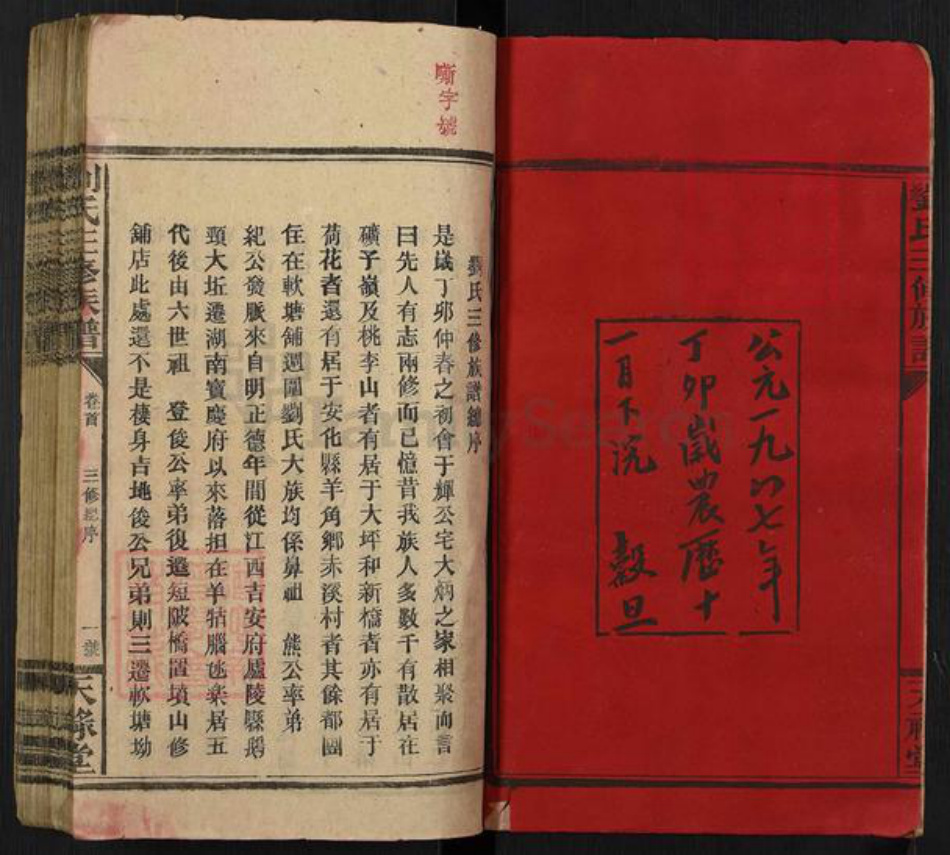 劉氏三修族譜
天祿堂
公元一九八七年
丁卯歲農歷十
一月下浣　穀旦
嘶字號
劉氏三修族譜總序
是歲丁卯仲春之初會于輝公宅大炳之家相聚而言
曰先人有志兩修而已憶昔我族人多數千有散居在
礦子嶺及桃李山者有居于大坪和新橋者亦有居于
荷花者還有居于安化縣羊角鄉赤溪村者其餘都團
住在軟塘舖週圍劉氏大族均係鼻祖　熊公率弟
紀公發厥來自明正德年間從江西吉安府廬陵縣鵝
頸大坵遷湖南寶慶府以來落担在羊牯腦毬樂居五
代後由六世祖　登俊公率弟復遷短陂橋置墳山修
鋪店此處還不是棲身吉地後公兄弟則三遷軟塘坳
劉氏三修族譜
卷首
三修總序
一號
天祿堂